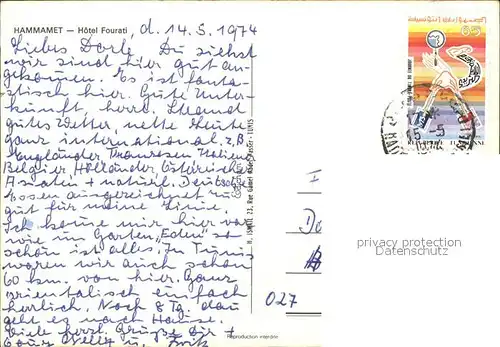 HAMMAMET — Hôtel Fourati
d. 14.5.1974
Liebes Dorle, Du siehst
wir sind hier gut an-
gekommen. Es ist fanta-
stisch hier. Gute Unter-
kunft, herrl. Strand
gutes Wetter, nette Leute
ganz international z.B.
Engländer Franzosen Italien
Belgier Holländer Österreich
Asiaten + natürl. Deutsche
Essen ausgezeichnet
gut für meine Linie.
Ich komme mir hier vor
wie im Garten „Eden" so
schön ist alles. In Tunis
waren wir auch schon
60 km. von hier. Ganz
orientalisch einfach
herrlich. Noch 8 Tg. dann
geht es nach Hause.
Viele herzl. Grüße Dir +
Nelly u. Fritz
Reproduction interdite
027
65
REPUBLIQUE TUNISIENNE
privacy protection
Datenschutz